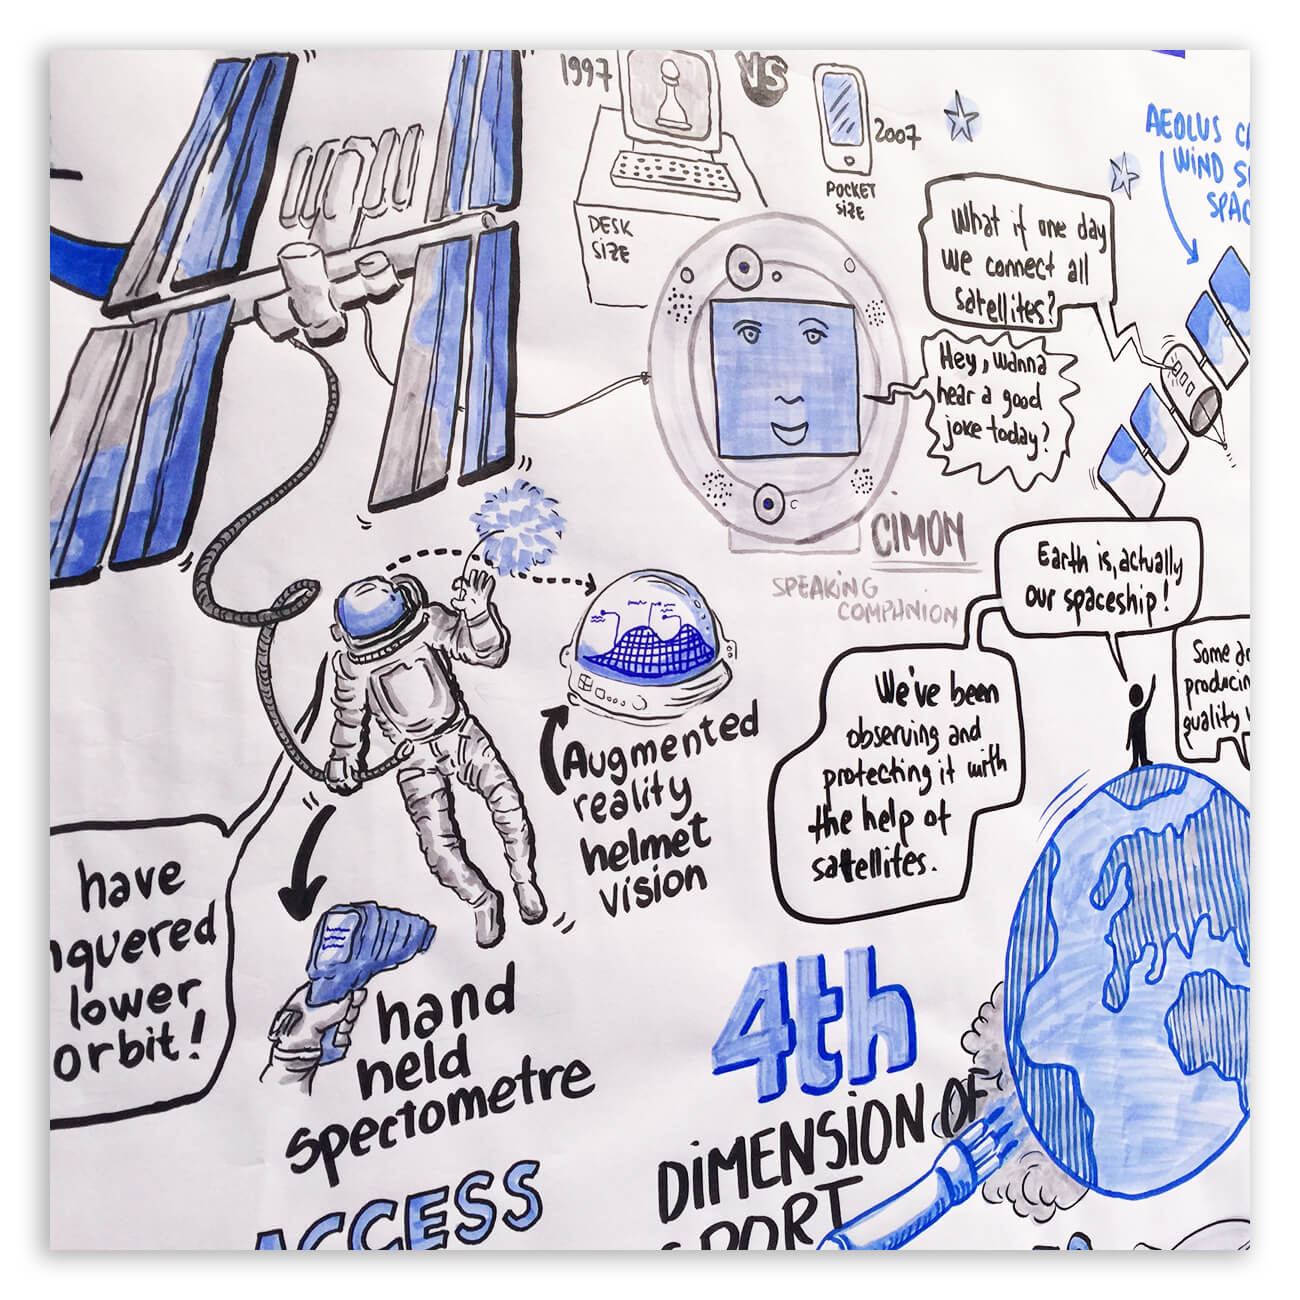 1997
VS
2007
POCKET
SIZE
DESK
SIZE
AEOLUS
WIND
What if one day
we connect all
satellites?
Hey, wanna
hear a good
joke today?
CIMON
SPEAKING
COMPANION
Earth is, actually
our spaceship!
We've been
observing and
protecting it with
the help of
satellites.
Some
quality
Augmented
reality
helmet
vision
have
lower
orbit!
hand
held
spectometre
ACCESS
4th
DIMENSION OF